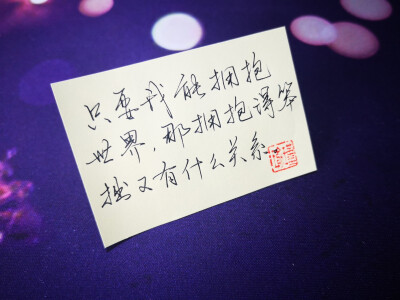 只要我能拥抱
世界，那拥抱得笨
拙又有什么关系…